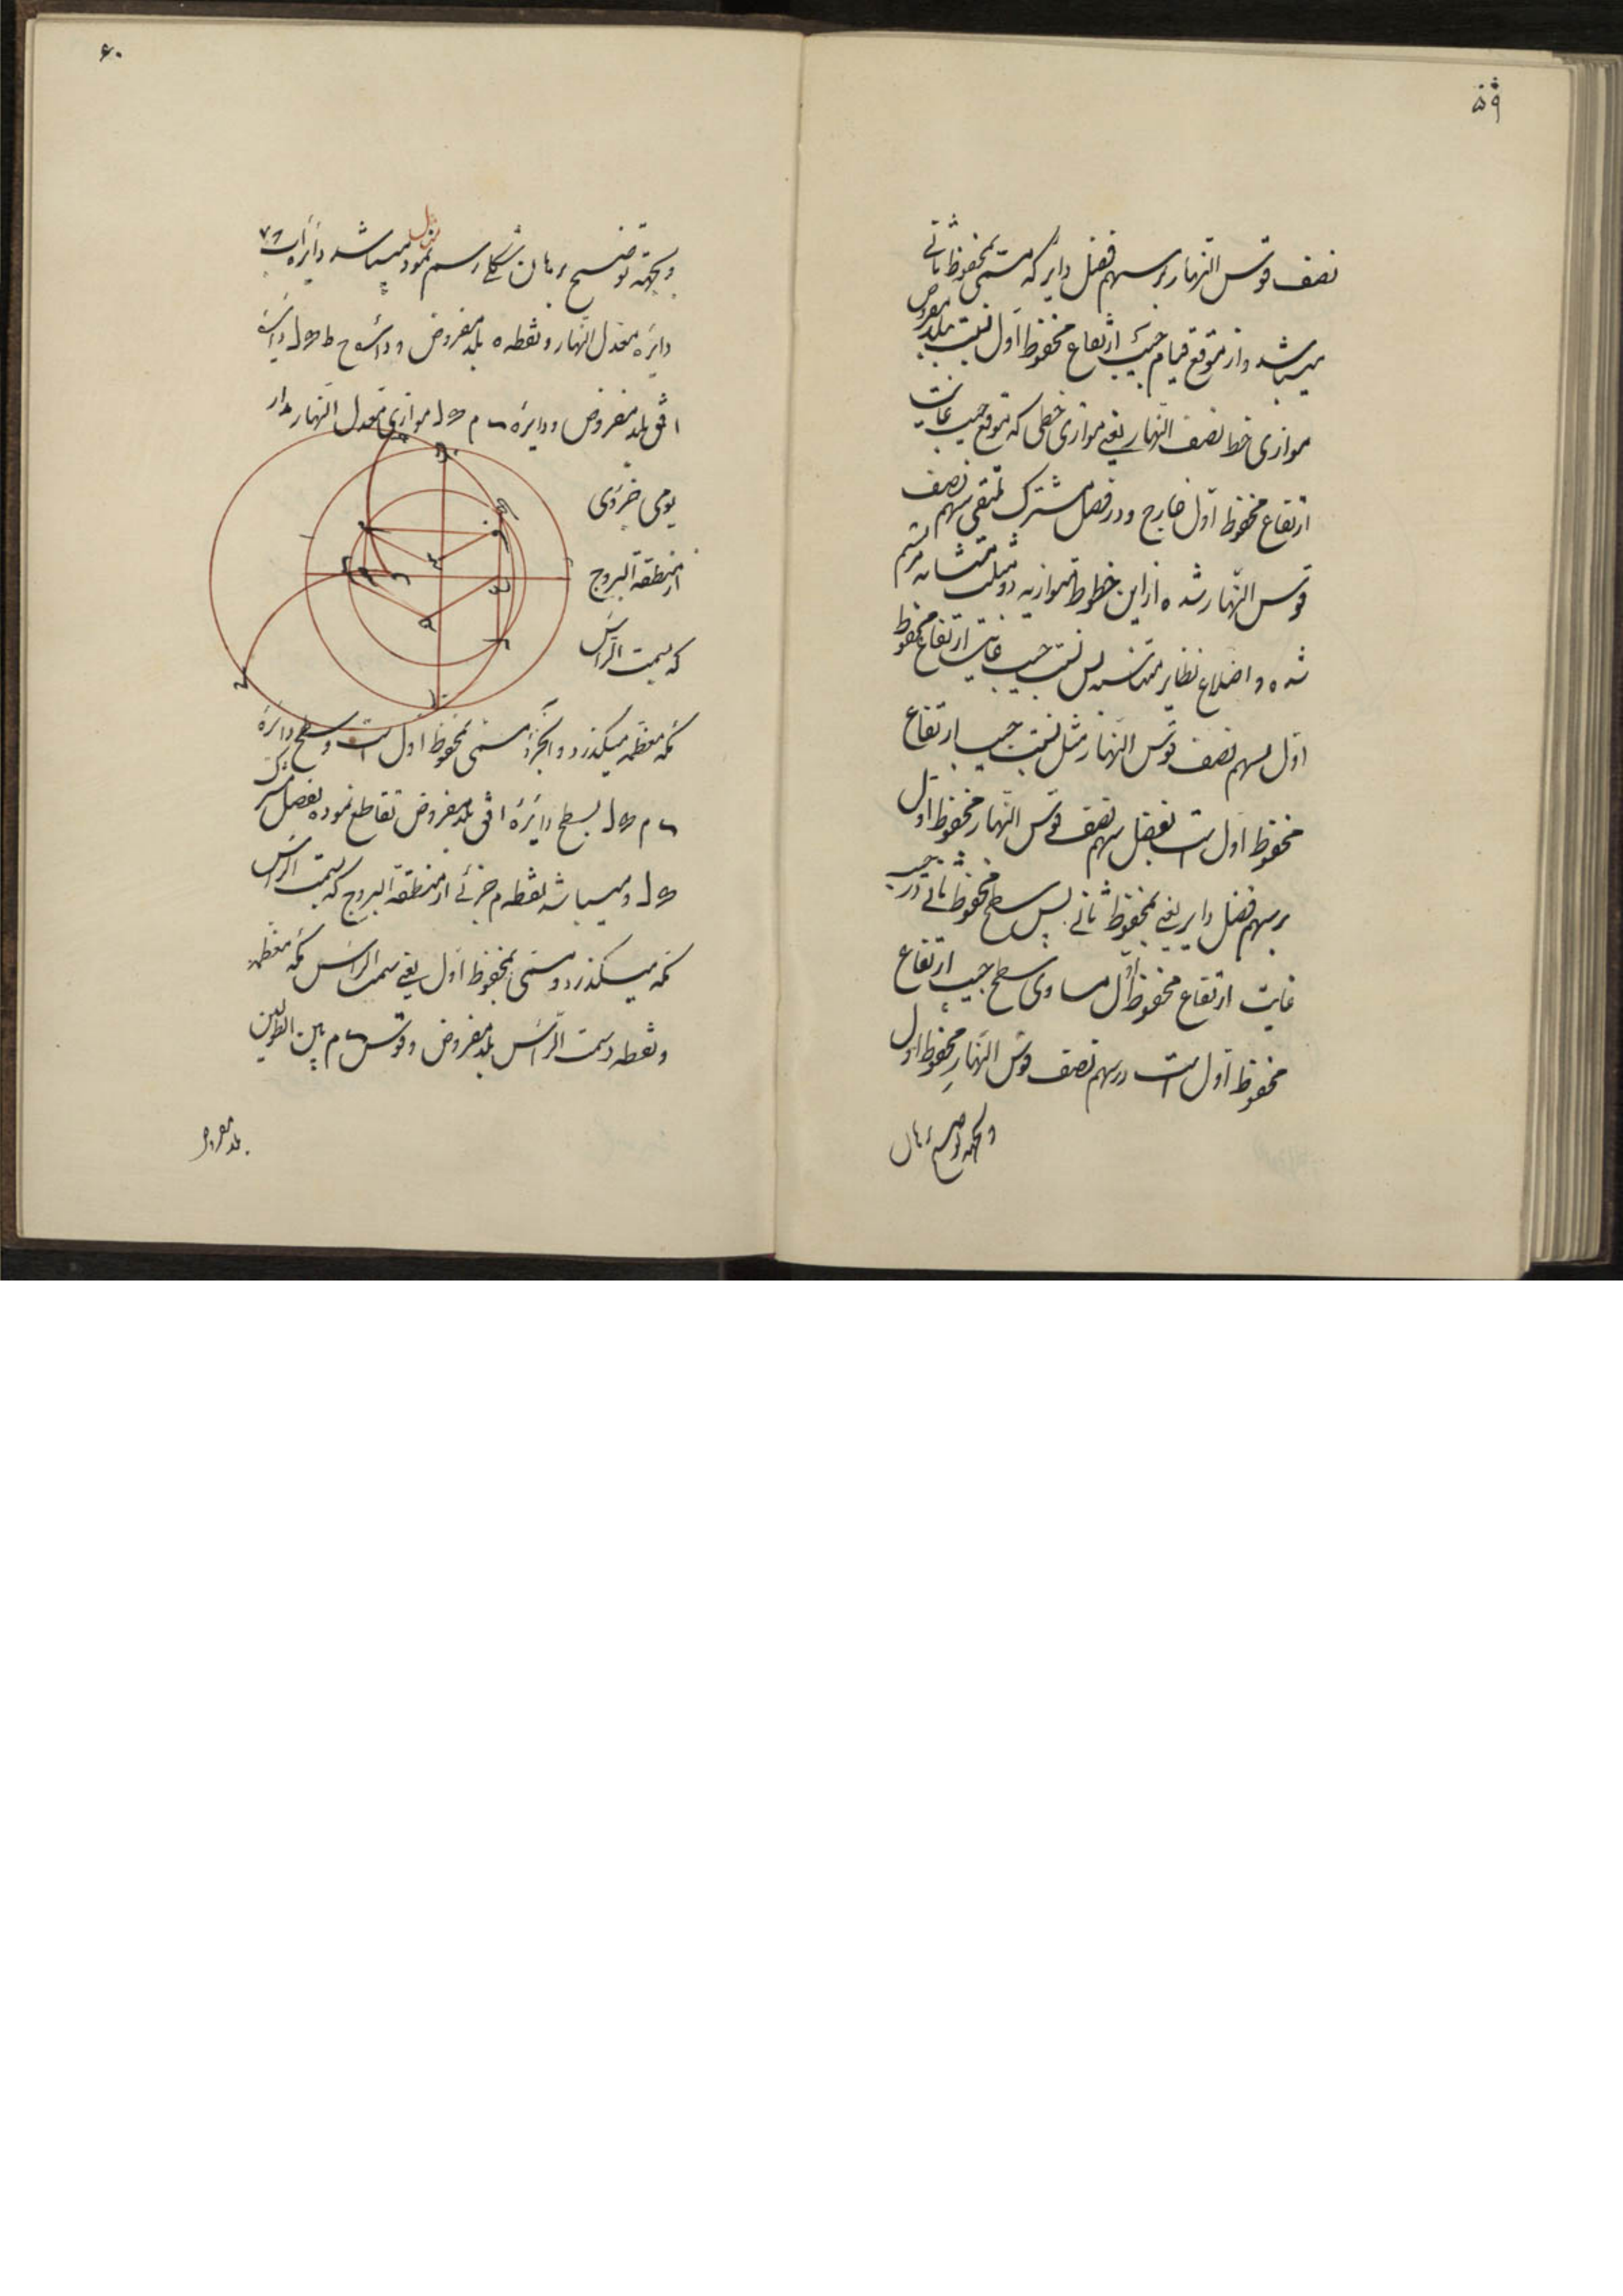 ۵۹
نصف قوس النهار بر سهم فضل دایر که مسمی بمحفوظ ثانی
میباشد و از موقع قیام جیب ارتفاع محفوظ اول نسبت ببلد مفروض
موازی خط نصف النهار یعنی موازی خطی که بموقع جیب غایت
ارتفاع محفوظ اول خارج و در فصل مشترک ملتقی سهم نصف
قوس النهار شده از این خطوط متوازیه دو مثلث متشابه مرتسم
شده و اضلاع نظایر متناسبه پس نسبت جیب غایت ارتفاع محفوظ
اول بسهم نصف قوس النهار مثل نسبت جیب ارتفاع
محفوظ اول است بفضل سهم نصف قوس النهار محفوظ اول
بر سهم فضل دایر یعنی بمحفوظ ثانی پس سطح محفوظ ثانی در جیب
غایت ارتفاع محفوظ اول مساوی سطح جیب ارتفاع
محفوظ اول است در سهم نصف قوس النهار محفوظ اول
و بجهة توضیح برهان
۶۰
و بجهة توضیح برهان شکل رسم نمود میباشد دایره اب
دایره معدل النهار و نقطه ه بلد مفروض و دایره ح ط ل دایره
افق بلد مفروض و دایره م ل موازی معدل النهار مدار
یومی جزوی
از منطقة البروج
که بسمت الراس
مکه معظمه میگذرد و آنجزو مسمی بمحفوظ اول است و سطح دایرهٔ
م ل بسطح دایرهٔ افق بلد مفروض تقاطع نموده بفصل مشترک
ل و میباشد نقطه م جزئی از منطقة البروج که بسمت الراس
مکه میگذرد و مسمی بمحفوظ اول یعنی سمت الراس مکه معظمه
و نقطه سمت الراس بلد مفروض و قوس م بین الطولین
بلد مفروض